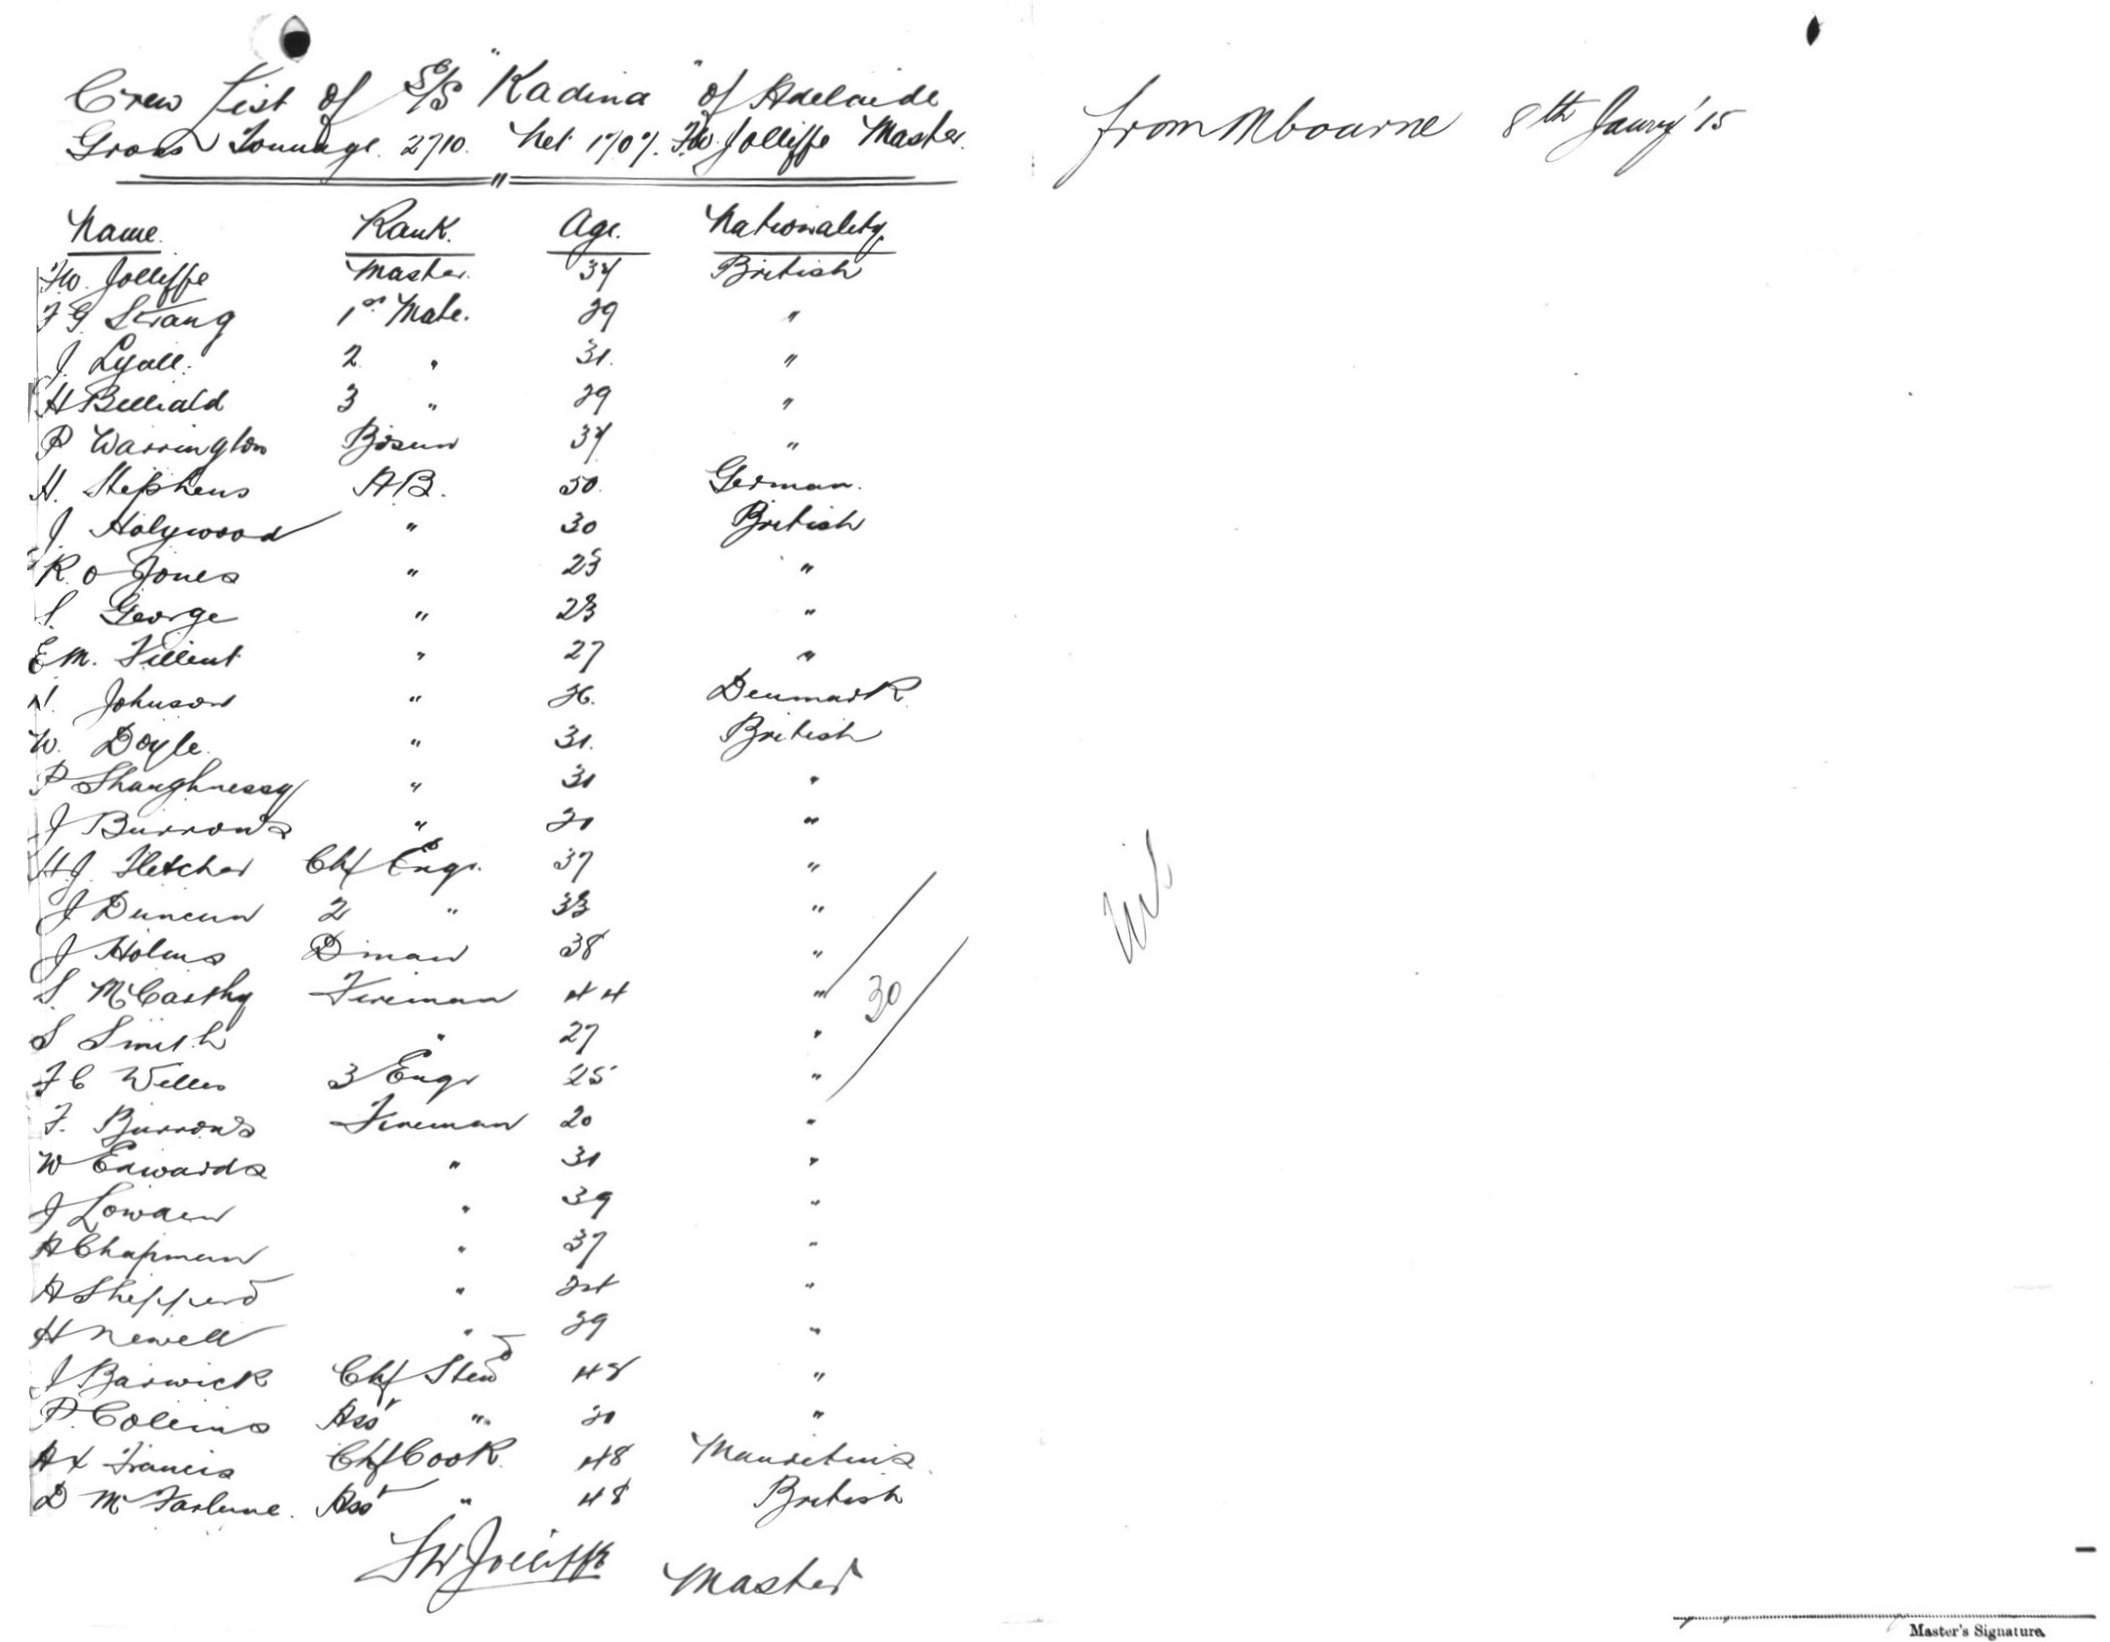 Crew List of S/S "Kadina" of Adelaide
Gross Tonnage. 2710. Net 1707. F.W. Jolliffe Master.
from Mbourne 8th Janry '15
Name. Rank. Age. Nationality
F.W. Jolliffe Master. 37 British
F G Strang 1st Mate. 29 "
J. Lyall. 2 " 31. "
H 3 " 29 "
P Warrington Bosun 37 "
H. Stephens A.B. 50. German.
J. Holywood " 30 British
R. O Jones " 23 "
S. George " 23 "
E M. " 27 "
N. Johnson " Denmark
W. Doyle. " 31. British
P Shaughnessy " 31 "
J Burrows " 21 "
H.J. Fletcher Chf Engr. 37 "
J Duncan 2 " 33 "
J Holms Dman 38 "
S. McCarthy Fireman 44 "
S Smith " 27 "
F C Welles 3 Engr 25 "
F. Burrows Fireman 20 "
W Edwards " 31 "
J " 39 "
A Chapman " 37 "
A Shepperd " "
H Newell " 29 "
J Barwick Chf Stewd 48 "
P. Collins Asst " "
A X Francis Chf Cook. 48 Mauritius.
D McFarlane. Asst " 48 British
30
Nil
FW Jolliffe Master
Master's Signature.